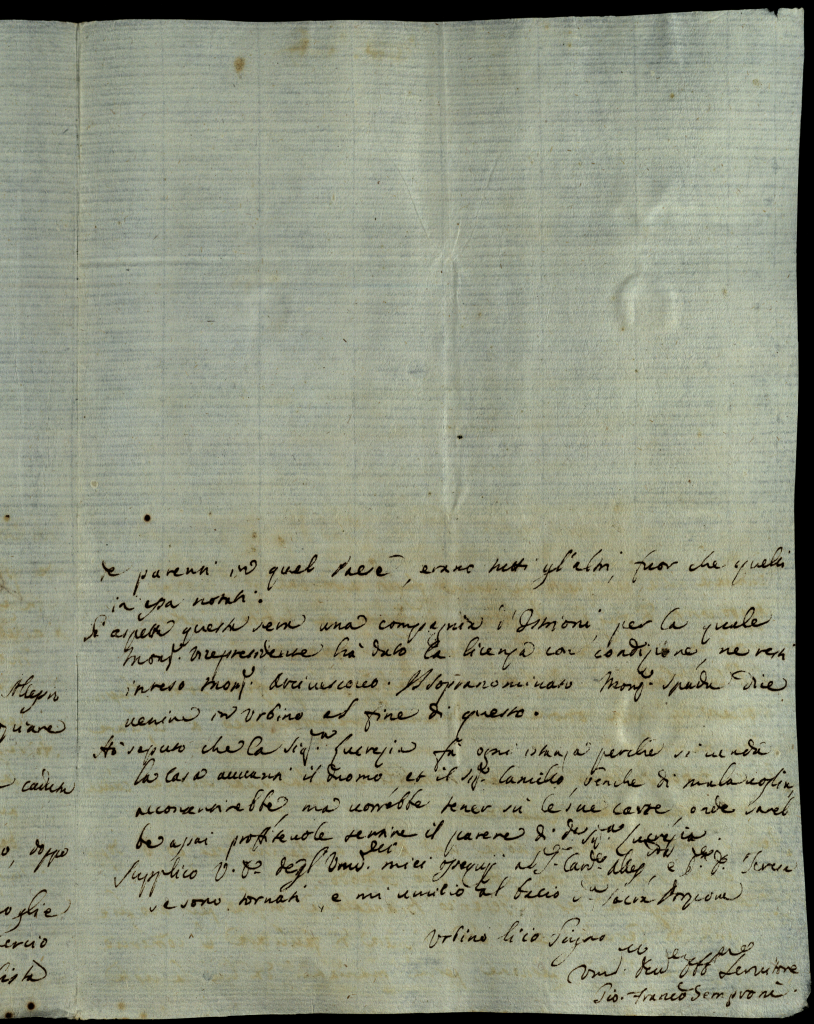 Alessri
caduta
o, doppo
oglie
ercio
lista
e parenti in quel Paese, erano tutti gl'altri, fuor che quelli
in essa notati.
Si aspetta questa sera una compagnia d'Istrioni, per la quale
Mons.r Vicepresidente hà dato la licenza con condizione, ne resti
inteso Mons.r Arcivescovo. Il sopranominato Mons.r Spada dice
venire in Urbino al fine di questo.
Hò saputo che la Sig.ra Lucrezia fà ogni istanza perche si venda
la casa avvanti il Duomo, et il Sig.r Camillo, benche di mala voglia,
acconsentirebbe, ma vorrebbe tener sù le sue carte, onde sareb
be assai profittevole sentire il parere di d.a Sig.ra Lucrezia.
Supplico V. S. degl'Um.mi miei ossequij al S.r Card.le Aless.ro, e D. Teresa
se sono tornati, e mi umilio al bacio d.a Sacra Porpora
Urbino li 10 Giugno
Um.mo Dev.mo Obb.mo Servitore
Gio. Franco Semproni